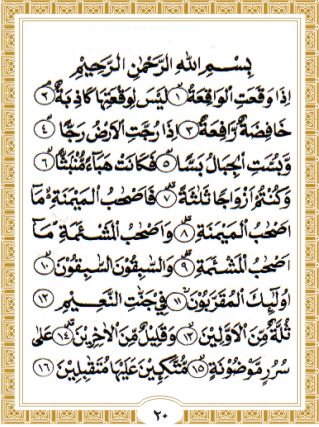 بِسْمِ اللهِ الرَّحْمٰنِ الرَّحِيْمِ
اِذَا وَقَعَتِ الْوَاقِعَةُ ۝١ لَيْسَ لِوَقْعَتِهَا كَاذِبَةٌ ۝٢
خَافِضَةٌ رَّافِعَةٌ ۝٣ اِذَا رُجَّتِ الْاَرْضُ رَجًّا ۝٤
وَّبُسَّتِ الْجِبَالُ بَسًّا ۝٥ فَكَانَتْ هَبَآءً مُّنْۢبَثًّا ۝٦
وَّكُنْتُمْ اَزْوَاجًا ثَلٰثَةً ۝٧ فَاَصْحٰبُ الْمَيْمَنَةِ مَآ
اَصْحٰبُ الْمَيْمَنَةِ ۝٨ وَاَصْحٰبُ الْمَشْـَٔمَةِ مَآ
اَصْحٰبُ الْمَشْـَٔمَةِ ۝٩ وَالسّٰبِقُوْنَ السّٰبِقُوْنَ ۝١٠
اُولٰٓئِكَ الْمُقَرَّبُوْنَ ۝١١ فِيْ جَنّٰتِ النَّعِيْمِ ۝١٢
ثُلَّةٌ مِّنَ الْاَوَّلِيْنَ ۝١٣ وَقَلِيْلٌ مِّنَ الْاٰخِرِيْنَ ۝١٤ عَلٰى
سُرُرٍ مَّوْضُوْنَةٍ ۝١٥ مُّتَّكِـِٕيْنَ عَلَيْهَا مُتَقٰبِلِيْنَ ۝١٦
٢٠